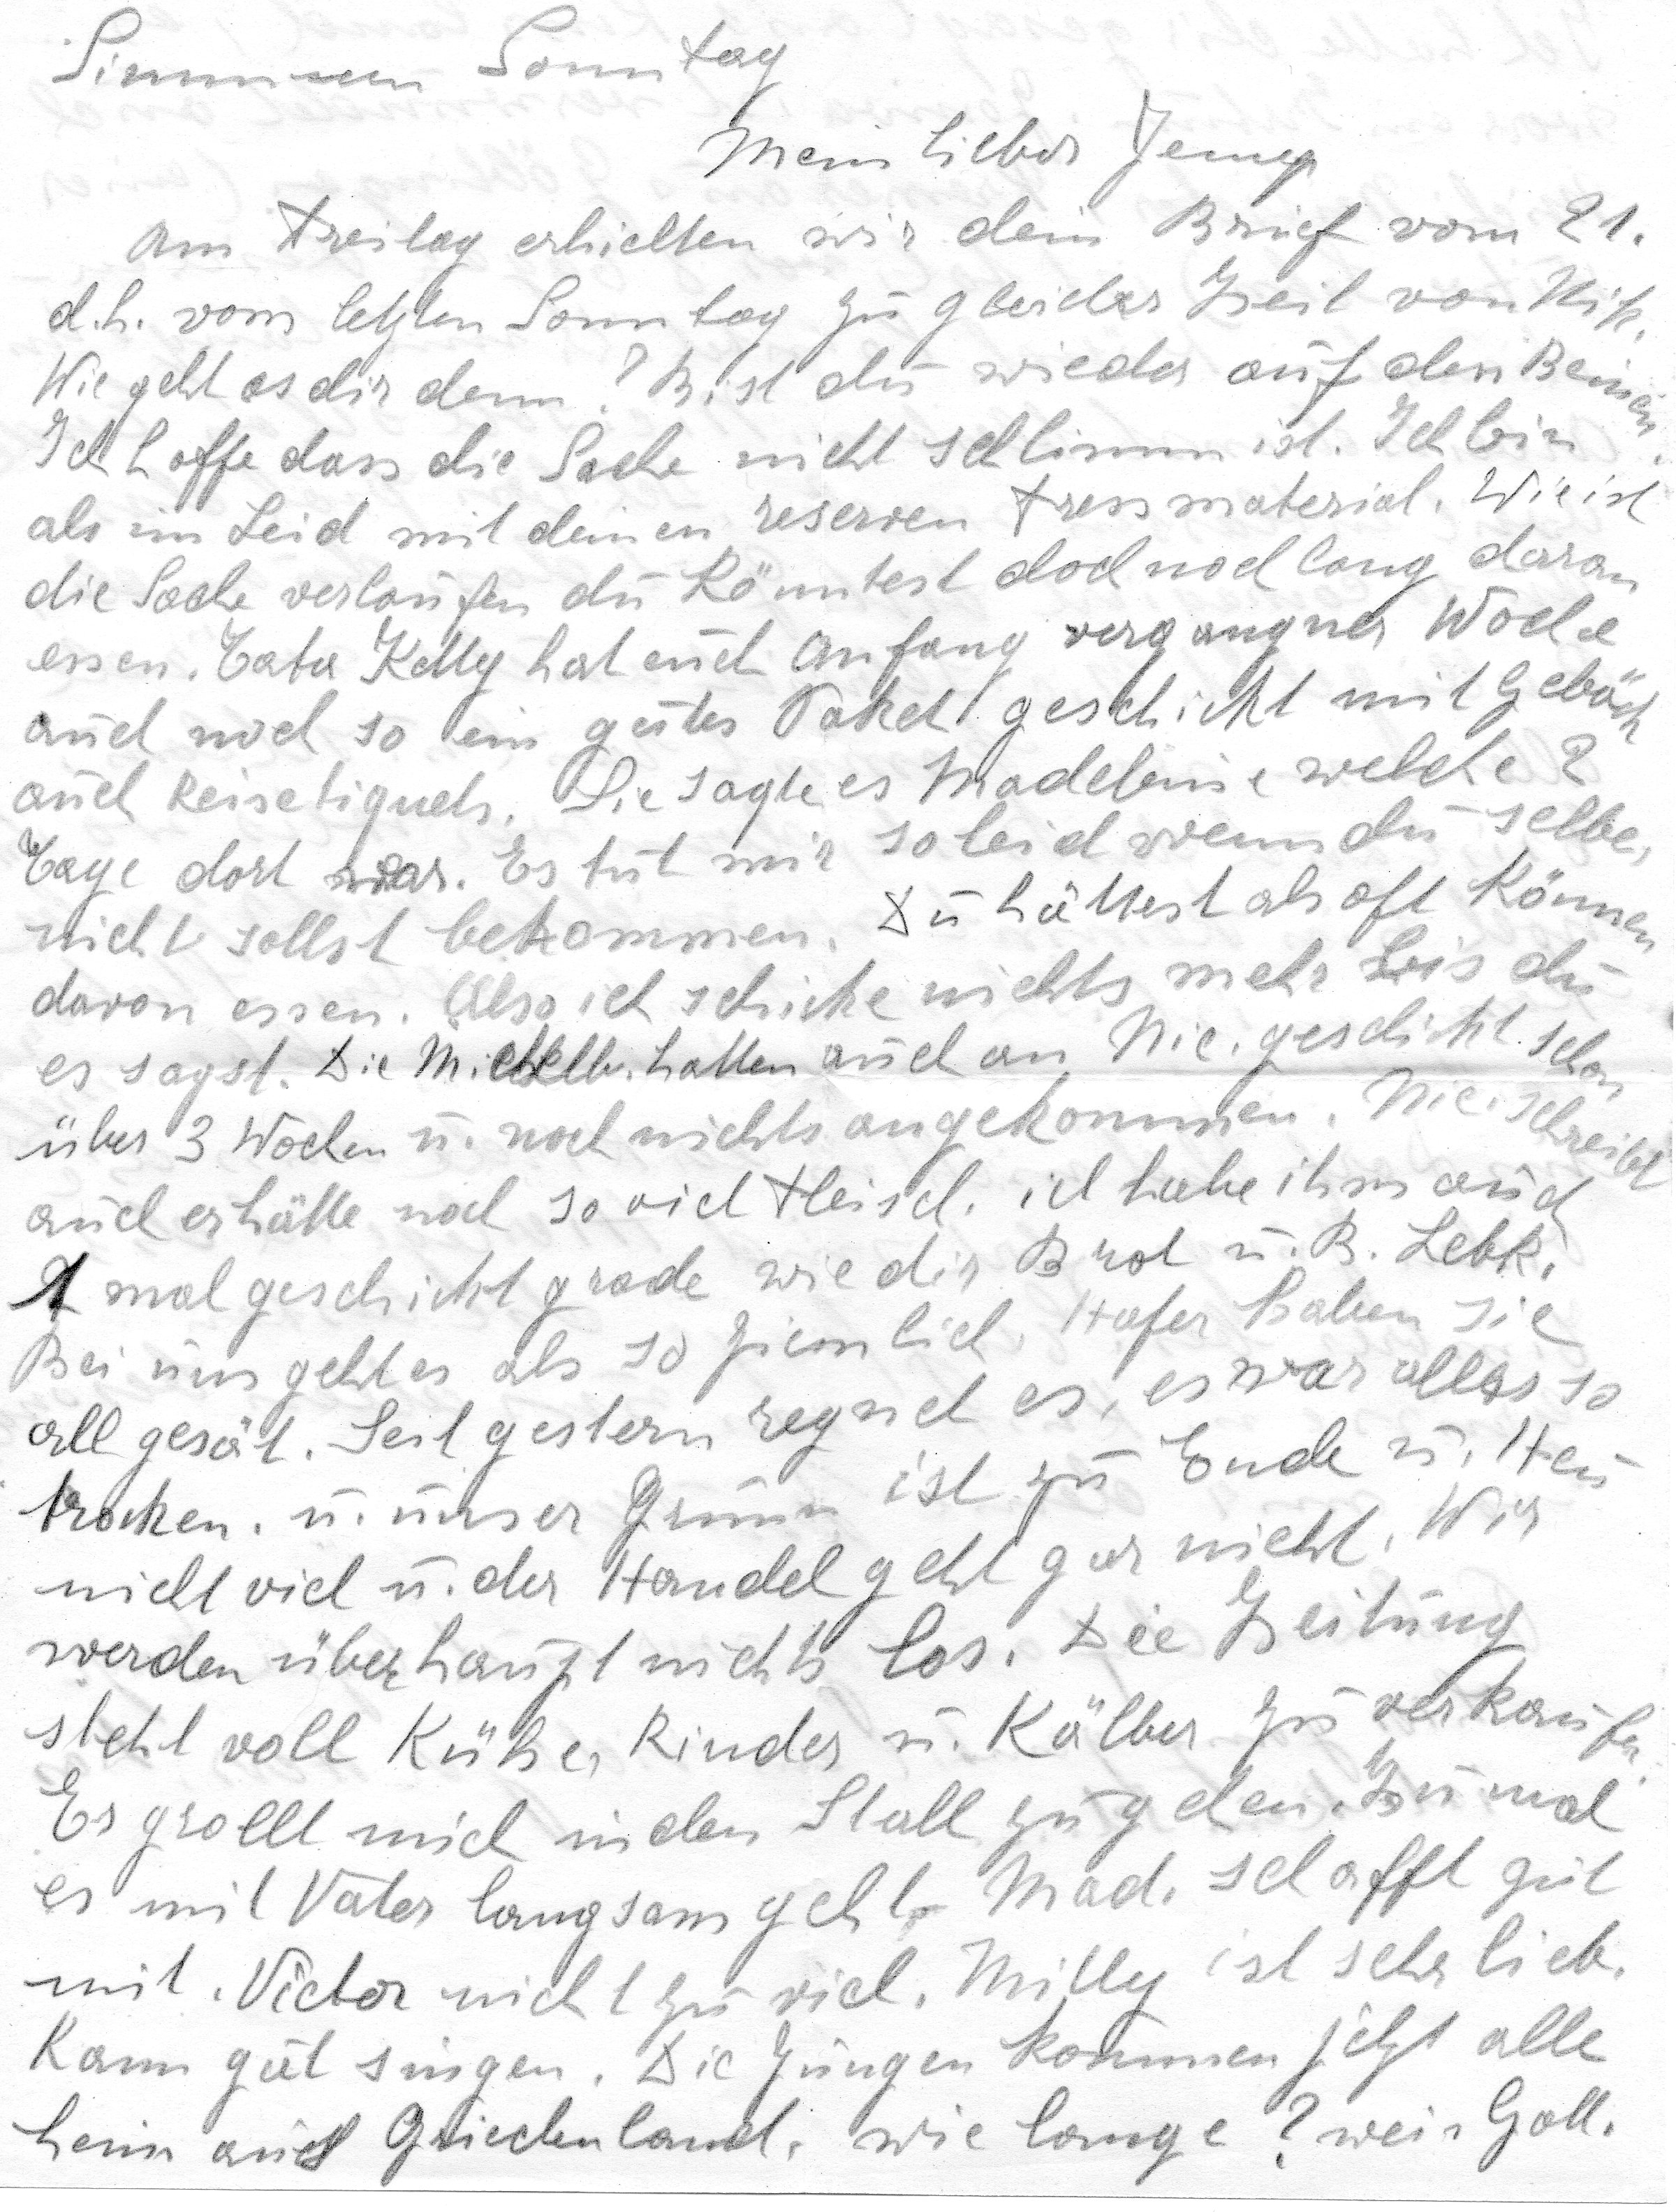 Simmern Sonntag
Mein lieber Jemp
Am Freitag erhielten wir dein Brief vom 21.
d.h. vom letzten Sonntag zu gleicher Zeit von Nik.
Wie geht es dir denn? Bist du wieder auf den Beinen.
Ich hoffe dass die Sache nicht schlimm ist. Ich bin
als im Leid mit deinen reserven Fressmaterial. Wie ist
die Sache verlaufen du könntest doch noch lang daran
essen. Tata Ketty hat euch Anfang vergangner Woche
auch noch so ein gutes Paket geschickt mit Gebäck
auch Reisetiquets. Sie sagte es Madeleine welche 2
Tage dort war. Es tut mir so leid wenn du selbe,
nicht sollst bekommen. Du hättest als oft können
davon essen. Also ich schicke nichts mehr bis du
es sagst. Die hatten auch an Nic. geschickt schon
über 3 Wochen u. noch nichts angekommen. Nic. schreibt
auch er hätte noch so viel Fleisch. ich habe ihm auch
1 mal geschickt grade wie dir Brot u. B. Lebk.
Bei uns geht es als so ziemlich. Hafer haben sie
all gesät. Seit gestern regnet es, es war alles so
trocken. u. unser Grünn ist zu Ende u. Heu
nicht viel u. der Handel geht gar nicht. Wir
werden überhaupt nichts los. Die Zeitung
steht voll Kühe, Rinder u. Kälber zu verkaufen.
Es grollt mich in den Stall zu gehen. Zumal
es mit Vater langsam geht. Mad. schafft gut
mit. Victor nicht zu viel. Milly ist sehr lieb.
Kann gut singen. Die Jungen kommen jetzt alle
heim aus Griechenland. wie lange? weis Gott.